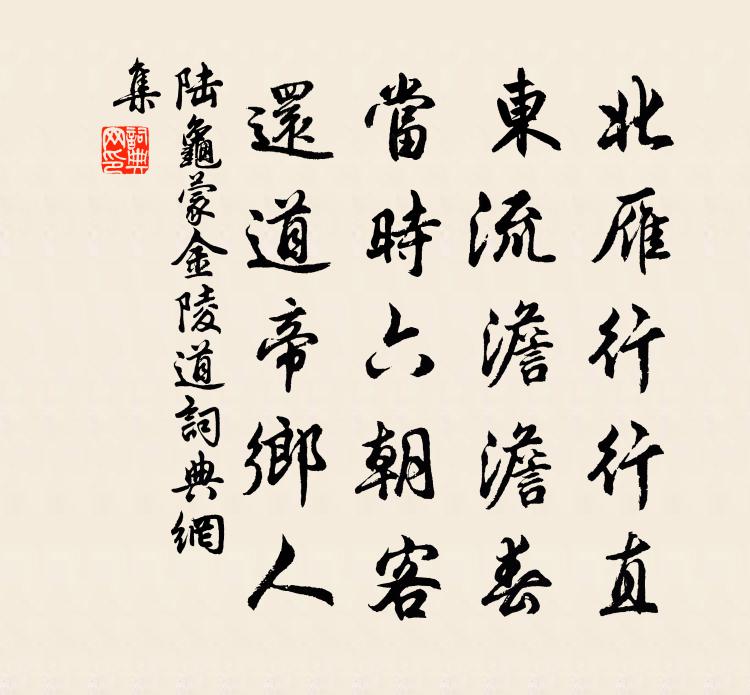 北雁行行直
東流澹澹春
當時六朝客
還道帝鄉人
陸龜蒙金陵道詞典網
集
詞典
网印